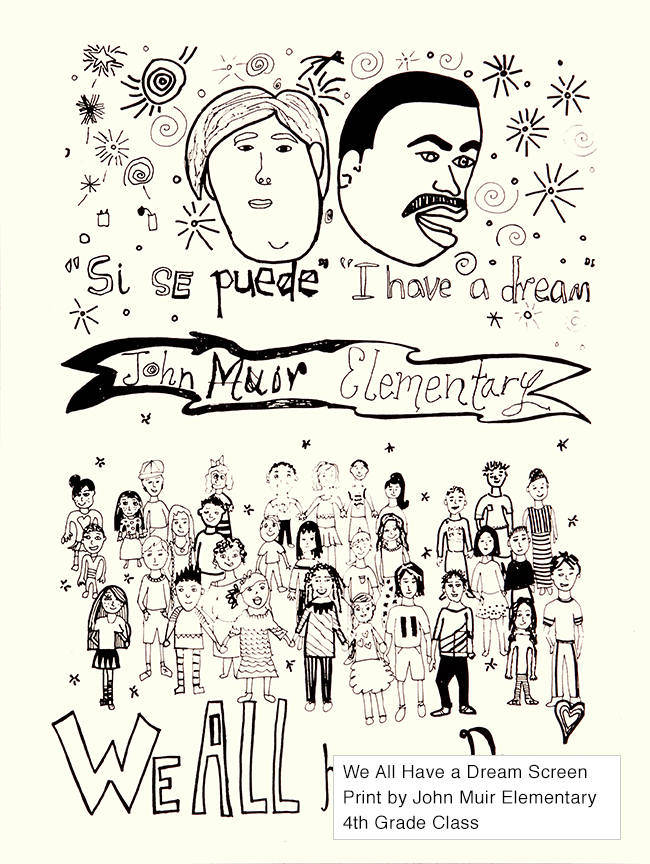 "Si SE puede" "I have a dream"
John Muir Elementary
We ALL
We All Have a Dream Screen
Print by John Muir Elementary
4th Grade Class